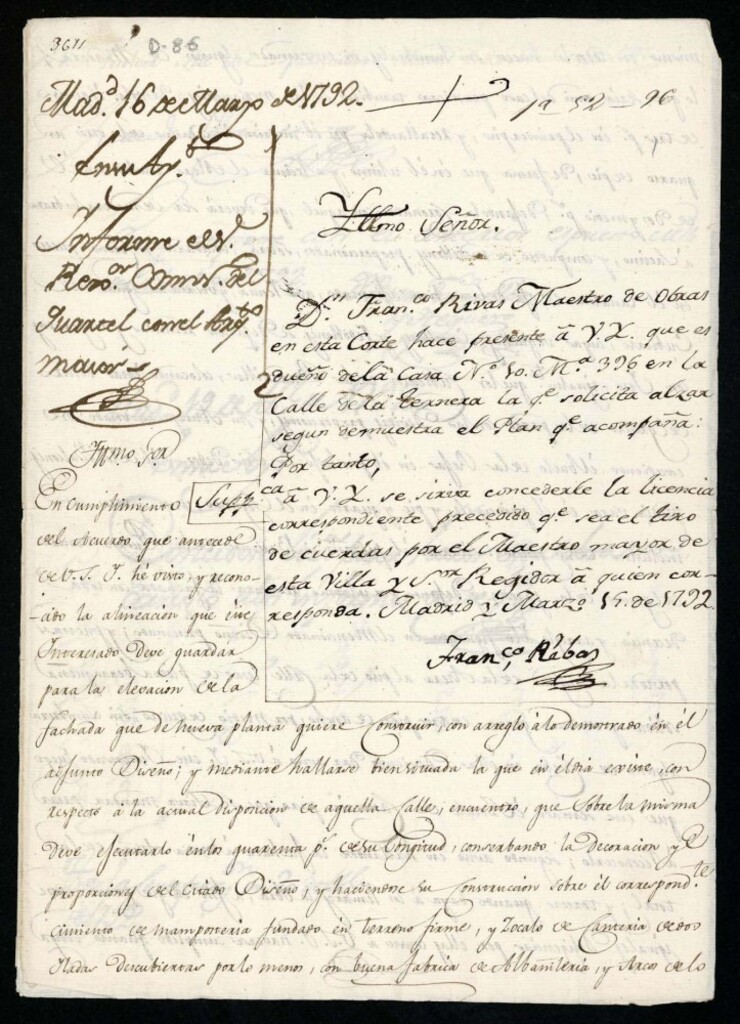 3611
D-86
Mad.d 16 de Marzo de 1792.
1a 52 - 96
En su Ay.to
Informe el S.
Rexo.or Comis. del
Quartel con el Arq.to
maior
Yllmo. Señor.
D.n Fran.co Rivas Maestro de Obras
en esta Corte hace presente â V.Y. que es
dueño de la Casa N.º 10. M.a 396 en la
Calle de la ternera la q.e solicita alzar
segun demuestra el Plan q.e acompaña:
Por tanto,
Supp.ca â V.Y. se sirva concederle la licencia
correspondiente precedido q.e sea el tiro
de cuerdas por el Maestro mayor de
esta Villa y S.or Regidor â quien cor-
responda. Madrid y Marzo 15. de 1792.
Fran.co Ribas
Yllmo. S.or
En cumplimiento
del Acuerdo que antecede
de V.S.I. hé visto, y recono-
cido la alineacion que éste
Interesado deve guardar
para la elevacion de la
fachada que de nueva planta quiere Construir, con arreglo á lo demostrado en él
adjunto Diseño; y mediante hallarse bien situada la que en él dia existe, con
respecto á la actual disposicion de aquella Calle, encuentro, que sobre la misma
deve ejecutarlo én los quarenta p.s de su Longitud, conserbando la Decoracion y
proporciones del citado Diseño; y haciendose su Construccion sobre él correspond.te
cimiento de mamposteria fundado én terreno firme, y Zocalo de Canteria de dos
iladas descubiertas por lo menos, con buena fabrica de Albañileria, y Arcos de lo